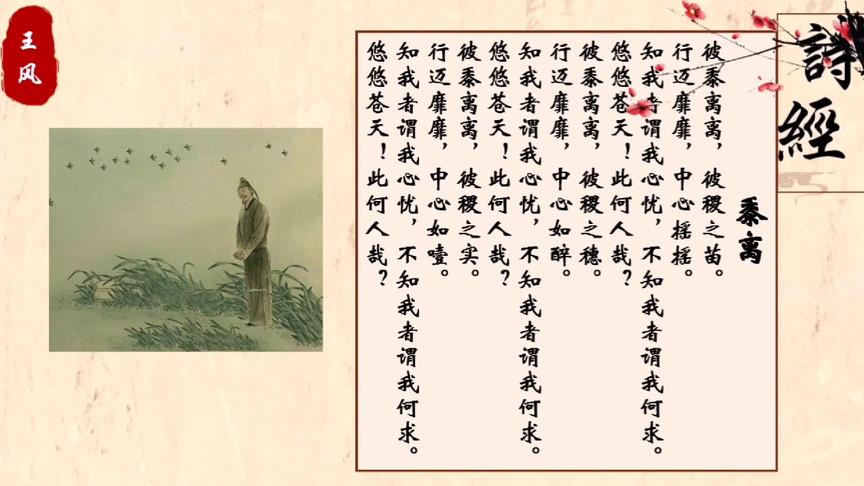 詩經
黍离
彼黍离离，彼稷之苗。
行迈靡靡，中心摇摇。
知我者谓我心忧，不知我者谓我何求。
悠悠苍天！此何人哉？
彼黍离离，彼稷之穗。
行迈靡靡，中心如醉。
知我者谓我心忧，不知我者谓我何求。
悠悠苍天！此何人哉？
彼黍离离，彼稷之实。
行迈靡靡，中心如噎。
知我者谓我心忧，不知我者谓我何求。
悠悠苍天！此何人哉？
王风